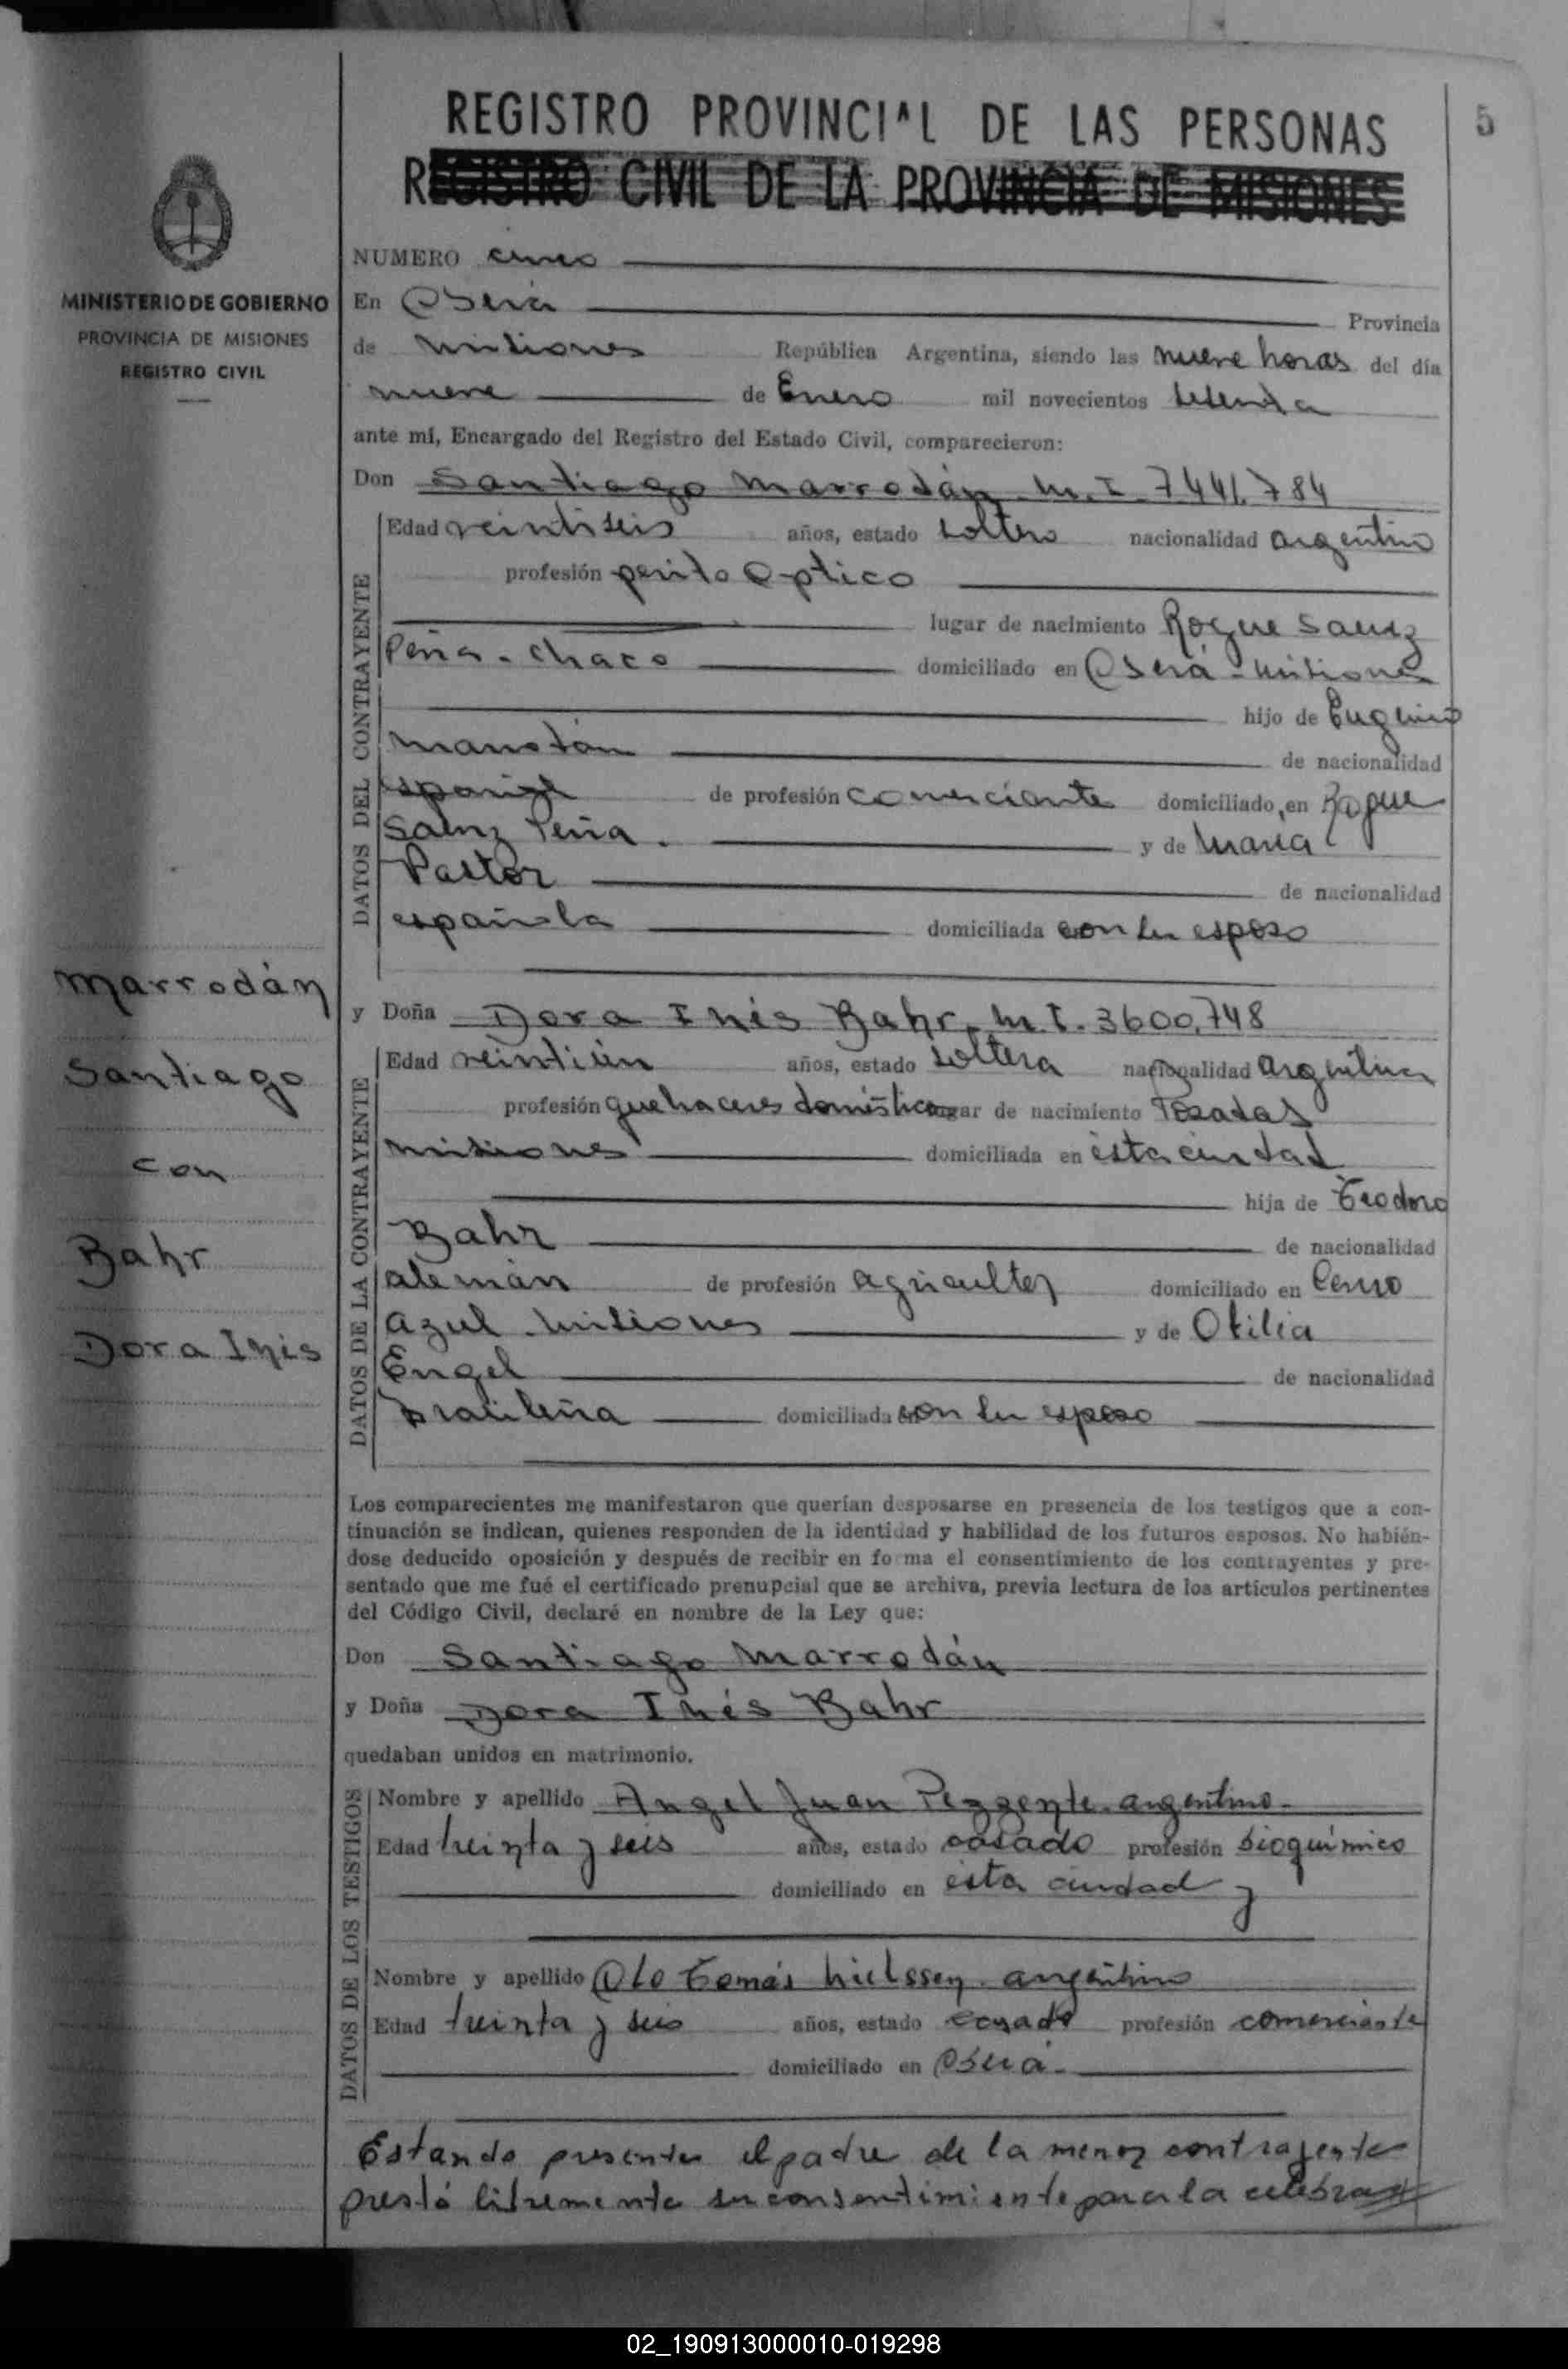 REGISTRO PROVINCIAL DE LAS PERSONAS
5
REGISTRO CIVIL DE LA PROVINCIA DE MISIONES
MINISTERIO DE GOBIERNO
PROVINCIA DE MISIONES
REGISTRO CIVIL
Marrodán
Santiago
con
Bahr
Dora Inés
NUMERO cinco
En Oberá Provincia
de misiones República Argentina, siendo las nueve horas del día
nueve de Enero mil novecientos
ante mí, Encargado del Registro del Estado Civil, comparecieron:
Don Santiago Marrodán M.I. 7441.784
DATOS DEL CONTRAYENTE
Edad veintiseis años, estado soltero nacionalidad argentino
profesión perito optico
lugar de nacimiento Roque Saenz
Peña - Chaco domiciliado en Oberá - misiones
hijo de Eugenio
marrodán de nacionalidad
español de profesión comerciante domiciliado en Roque
Saenz Peña. y de María
Pastor de nacionalidad
española domiciliada con su esposo
y Doña Dora Inés Bahr M.I. 3600.748
DATOS DE LA CONTRAYENTE
Edad veintiún años, estado soltera nacionalidad argentina
profesión quehaceres domésticos lugar de nacimiento Posadas
misiones domiciliada en esta ciudad
hija de Teodoro
Bahr de nacionalidad
alemán de profesión agricultor domiciliado en Cerro
azul - misiones y de Otilia
Engel de nacionalidad
brasileña domiciliada con su esposo
Los comparecientes me manifestaron que querían desposarse en presencia de los testigos que a con-
tinuación se indican, quienes responden de la identidad y habilidad de los futuros esposos. No habién-
dose deducido oposición y después de recibir en forma el consentimiento de los contrayentes y pre-
sentado que me fué el certificado prenupcial que se archiva, previa lectura de los artículos pertinentes
del Código Civil, declaré en nombre de la Ley que:
Don Santiago Marrodán
y Doña Dora Inés Bahr
quedaban unidos en matrimonio.
DATOS DE LOS TESTIGOS
Nombre y apellido Angel Juan Pezzente. argentino -
Edad treinta y seis años, estado casado profesión bioquímico
domiciliado en esta ciudad y
Nombre y apellido Olo Tomás Nielssen. argentino
Edad treinta y seis años, estado casado profesión comerciante
domiciliado en Oberá -
Estando presente el padre de la menor contrayente
prestó libremente su consentimiento para la celebra
02_190913000010-019298